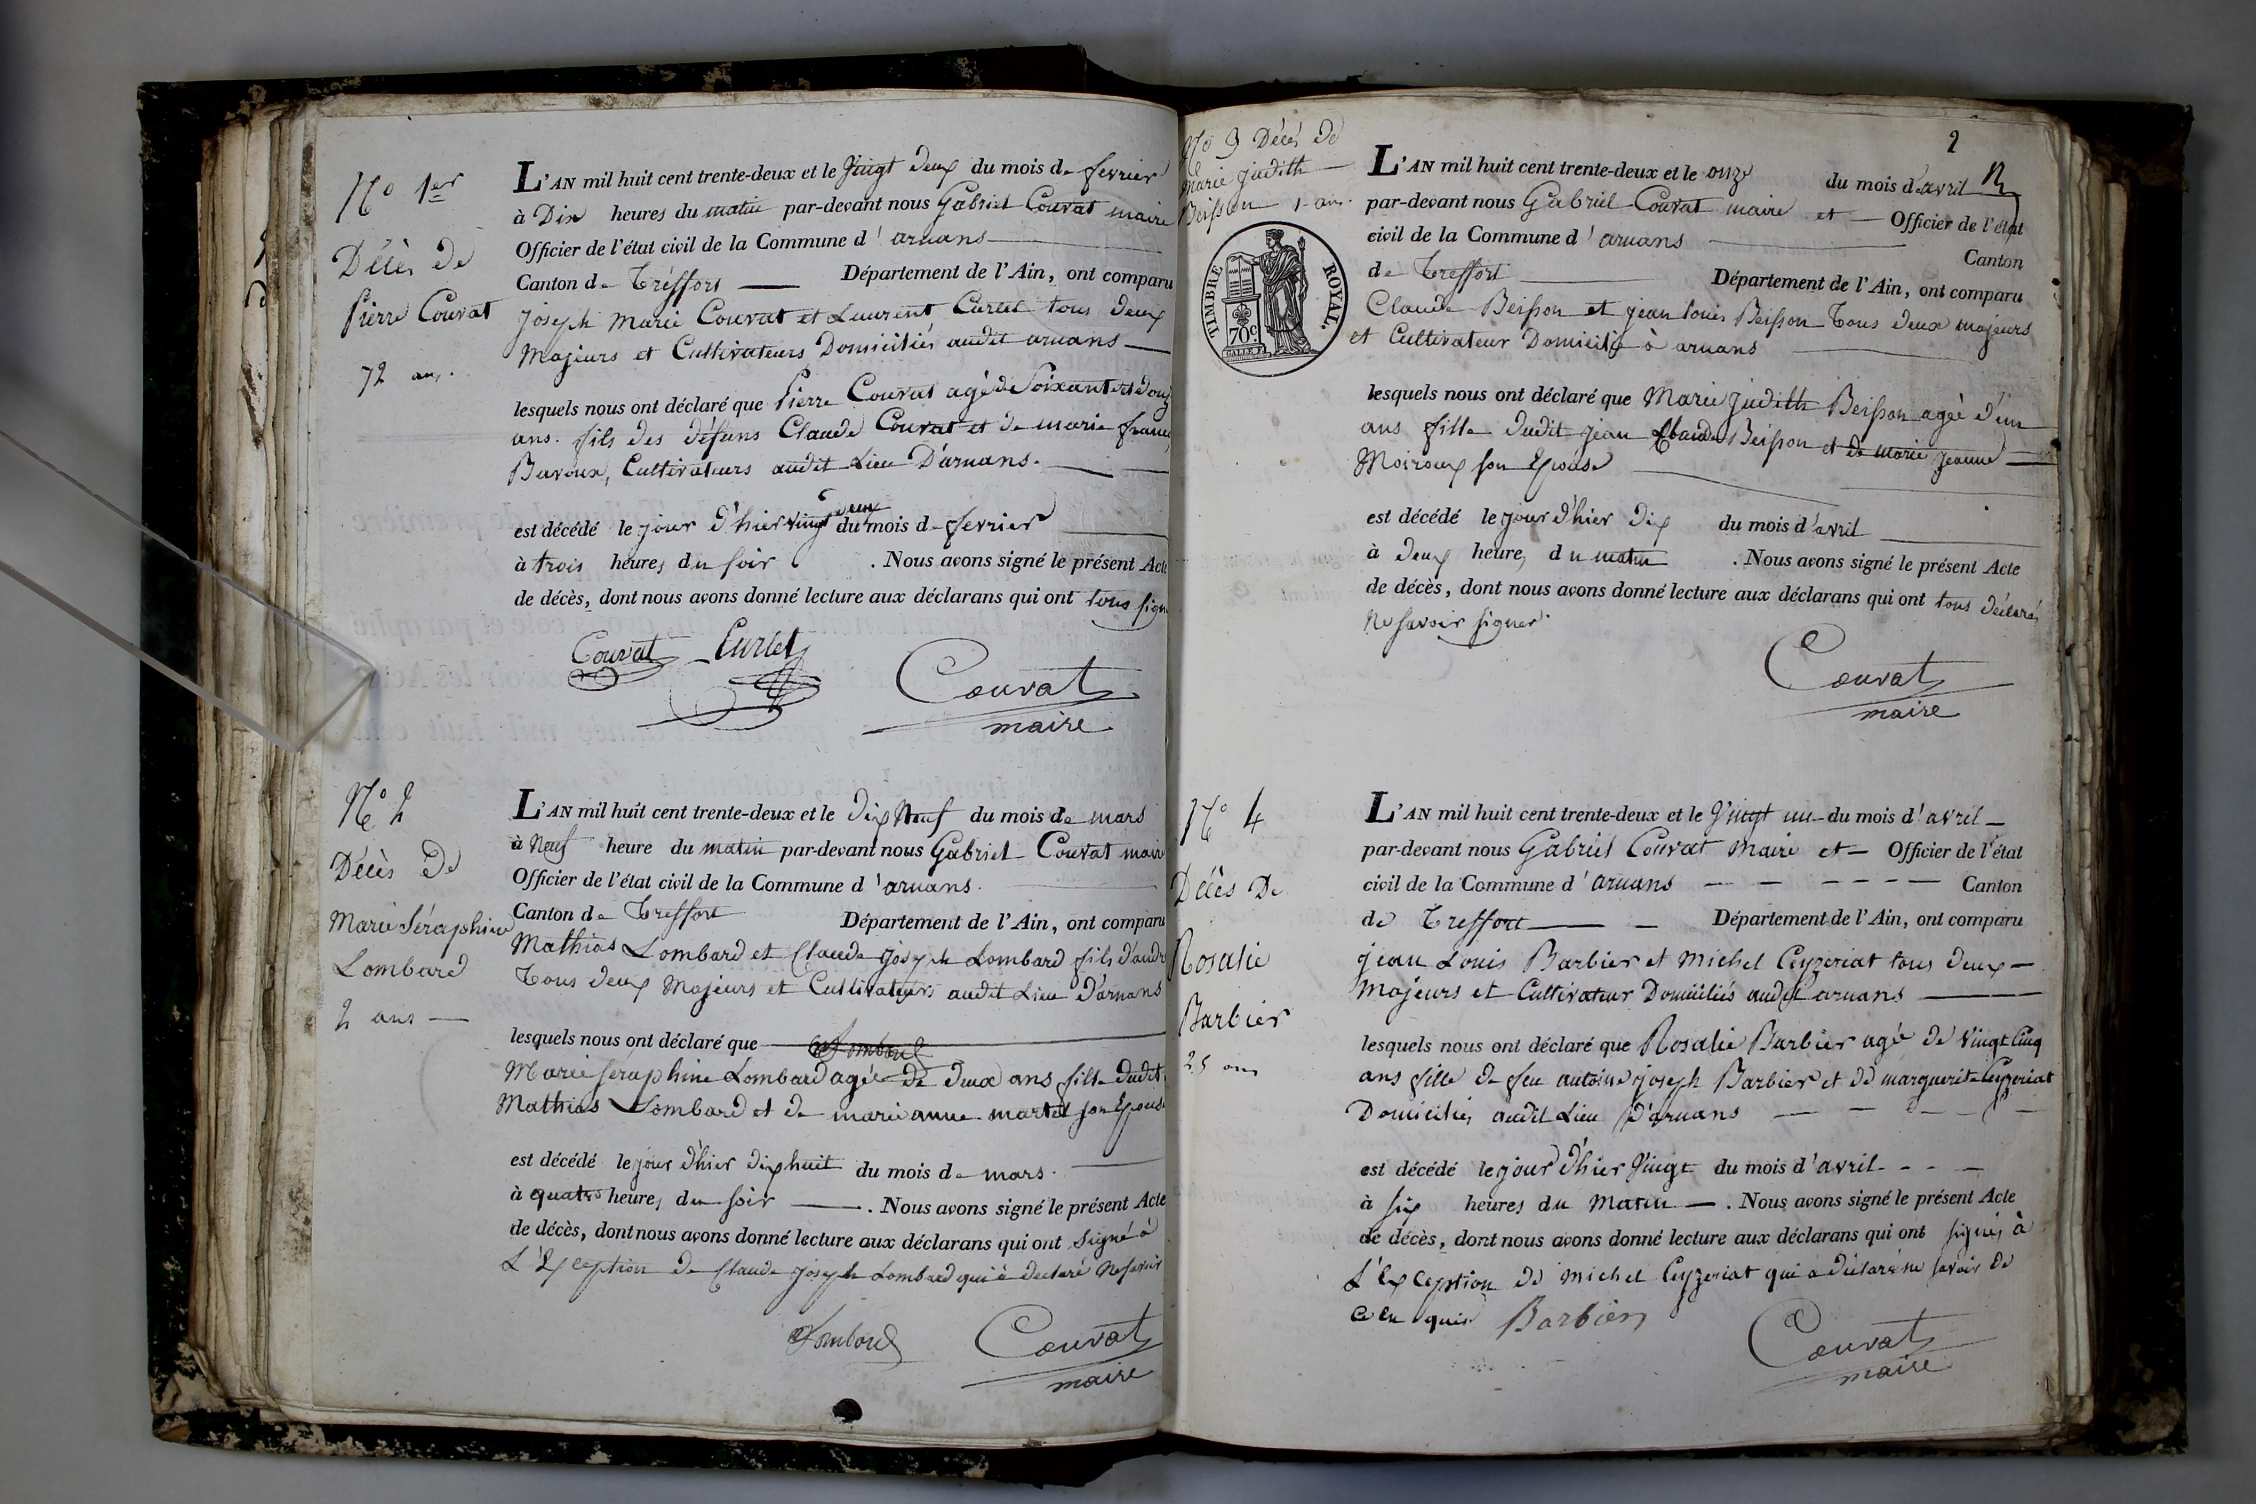 No 1er
Décès de
Pierre Couvat
72 ans.
L'AN mil huit cent trente-deux et le Vingt deux du mois de fevrier
à Dix heures du matin par-devant nous Gabriel Couvat maire
Officier de l'état civil de la Commune d'aruans
Canton de Tréffort Département de l'Ain, ont comparu
joseph Marie Couvat et Laurent Curlet tous deux
Majeurs et Cultivateurs Domiciliés audit aruans
lesquels nous ont déclaré que Pierre Couvat agé de Soixante et douz
ans. fils des défuns Claude Couvat et de marie franç
Bavoux, Cultivateurs audit Lieu D'aruans.
est décédé le jour d'hier vingt deux du mois de fevrier
à trois heures du soir . Nous avons signé le présent Acte
de décès, dont nous avons donné lecture aux déclarans qui ont tous signé
Couvat Curlet Couvat
maire
No 2
Décès de
Marie Séraphine
Lombard
2 ans
L'AN mil huit cent trente-deux et le dix Neuf du mois de mars
à Neuf heure du matin par-devant nous Gabriel Couvat maire
Officier de l'état civil de la Commune d'aruans.
Canton de Treffort Département de l'Ain, ont comparu
Mathias Lombard et Claude joseph Lombard fils d'andr
Tous deux Majeurs et Cultivateurs audit Lieu D'aruans
lesquels nous ont déclaré que
Marie séraphine Lombard agée de deux ans fille dudit
Mathias Lombard et de marie anne martel son Epouse
est décédé le jour d'hier dix huit du mois de mars.
à quatre heures du soir . Nous avons signé le présent Acte
de décès, dont nous avons donné lecture aux déclarans qui ont signé à
L'Exception de Claude joseph Lombard qui à declaré Ne savoir
Lombard Couvat
maire
2
No 3 Décès de
Marie judith
Beisson 1 an.
TIMBRE ROYAL.
70c
L'AN mil huit cent trente-deux et le onze du mois d'avril
par-devant nous Gabriel Couvat maire et Officier de l'état
civil de la Commune d'aruans Canton
de Treffort Département de l'Ain, ont comparu
Claude Beisson et jean louis Beisson Tous deux majeurs
et Cultivateur Domicilié à aruans
lesquels nous ont déclaré que Marie judith Beisson agée d'un
ans fille dudit jean Claude Beisson et de marie jeanne
Moiroux son Epouse
est décédé le jour d'hier dix du mois d'avril
à deux heures du matin . Nous avons signé le présent Acte
de décès, dont nous avons donné lecture aux déclarans qui ont tous déclarés
Ne savoir signer.
Couvat
maire
No 4
Décès De
Rosalie
Barbier
25 ans
L'AN mil huit cent trente-deux et le Vingt un du mois d'avril
par-devant nous Gabriel Couvat Maire et Officier de l'état
civil de la Commune d'aruans Canton
de Treffort Département de l'Ain, ont comparu
jean Louis Barbier et Michel Ceyzeriat tous deux
Majeurs et Cultivateur Domiciliés audit aruans
lesquels nous ont déclaré que Rosalie Barbier agé de Vingt Cinq
ans fille de feu antoine joseph Barbier et de marguerite Ceyzeriat
Domiciliés audit Lieu D'aruans
est décédé le jour d'hier Vingt du mois d'avril
à six heures du Matin . Nous avons signé le présent Acte
de décès, dont nous avons donné lecture aux déclarans qui ont signés à
L'Exception de Michel Ceyzeriat qui a déclaré ne savoir de
Barbier Couvat
maire